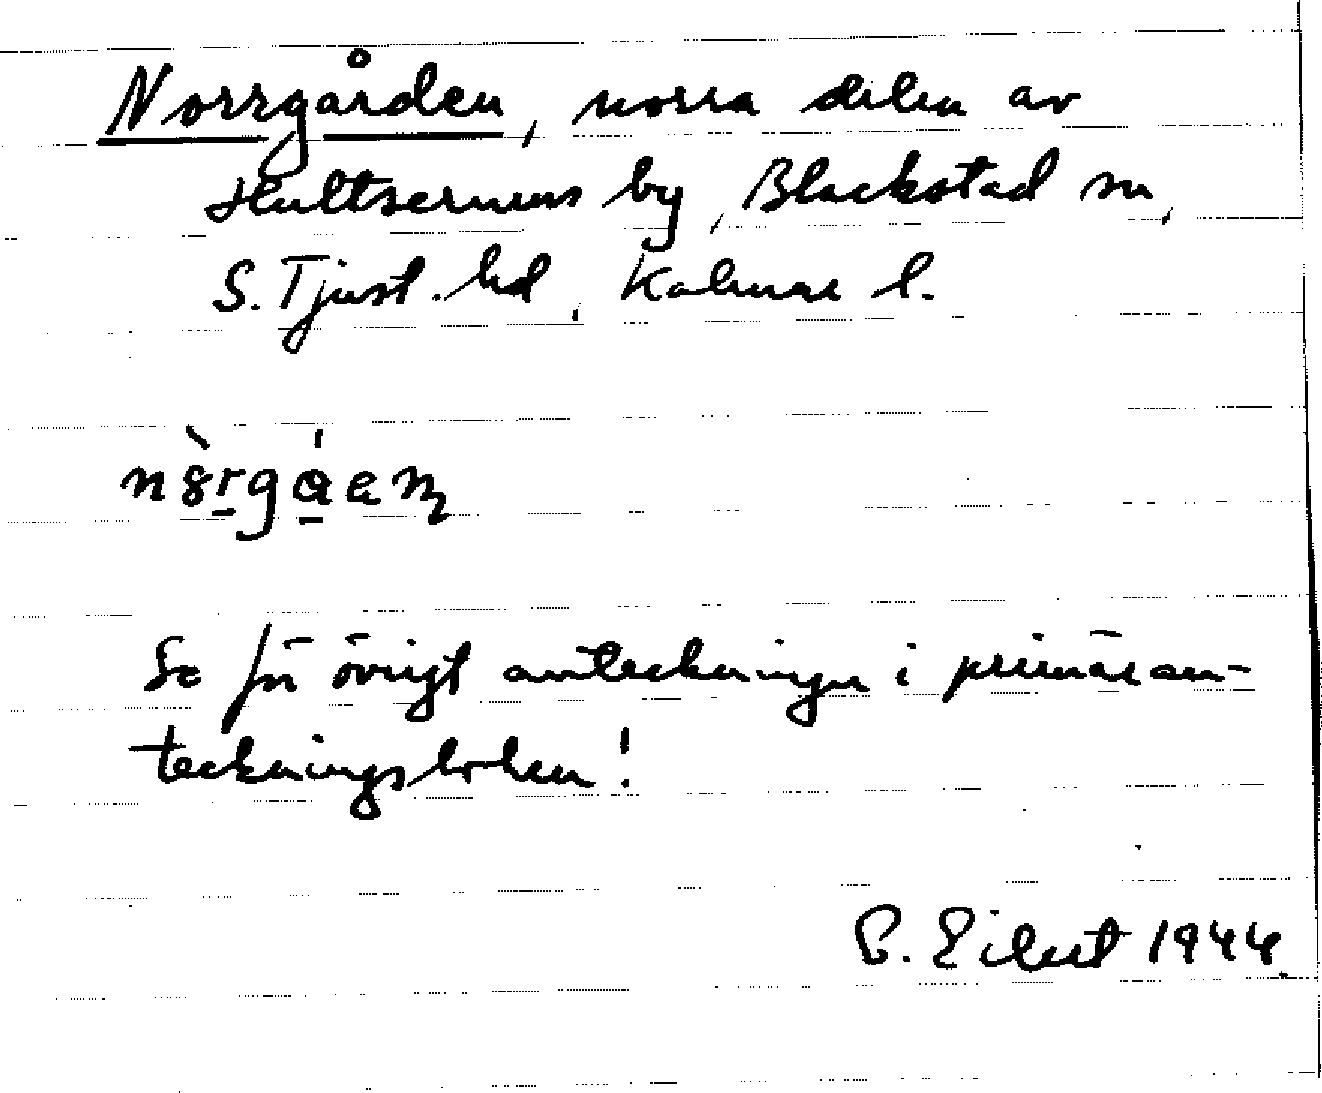 Norrgården, norra delen av
Hultserums by, Blackstad sn,
S. Tjust hd, Kalmar l.
Se för övrigt anteckningar i primäran-
teckningsboken!
1944.